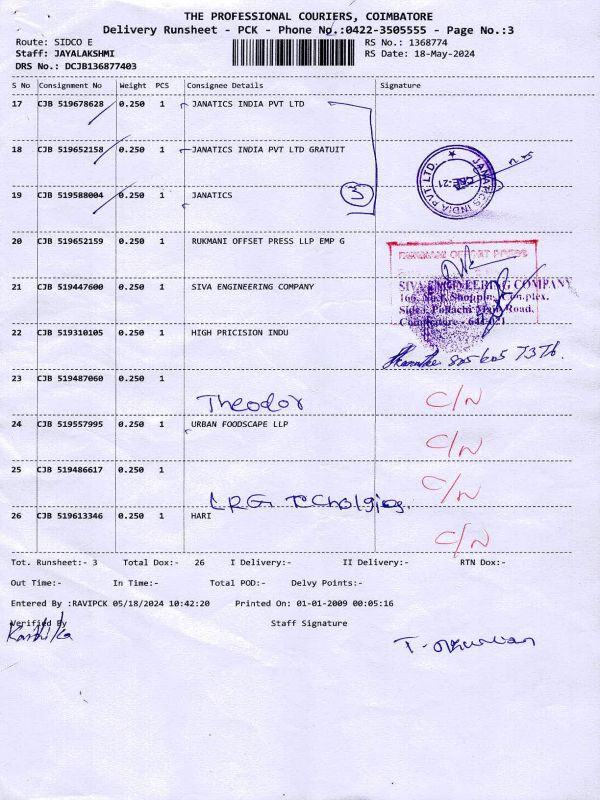 THE PROFESSIONAL COURIERS, COIMBATORE
Delivery Runsheet - PCK - Phone No.:0422-3505555 - Page No.:3
Route: SIDCO E RS No.: 1368774
Staff: JAYALAKSHMI RS Date: 18-May-2024
DRS No.: DCJB136877403
S No Consignment No Weight PCS Consignee Details Signature
17 CJB 519678628 0.250 1 JANATICS INDIA PVT LTD
18 CJB 519652158 0.250 1 JANATICS INDIA PVT LTD GRATUIT
JANATICS INDIA PVT LTD.
CBE-21
19 CJB 519588004 0.250 1 JANATICS
3
20 CJB 519652159 0.250 1 RUKMANI OFFSET PRESS LLP EMP G
RUKMANI OFFSET PRESS
21 CJB 519447600 0.250 1 SIVA ENGINEERING COMPANY
SIVA ENGINEERING COMPANY
Shopping Complex,
Sidco, Pollachi Main Road,
Coimbatore - 641 021
22 CJB 519310105 0.250 1 HIGH PRICISION INDU
23 CJB 519487060 0.250 1
Theodor C/N
24 CJB 519557995 0.250 1 URBAN FOODSCAPE LLP
C/N
25 CJB 519486617 0.250 1
C/N
26 CJB 519613346 0.250 1 HARI
C/N
Tot. Runsheet:- 3 Total Dox:- 26 I Delivery:- II Delivery:- RTN Dox:-
Out Time:- In Time:- Total POD:- Delvy Points:-
Entered By :RAVIPCK 05/18/2024 10:42:20 Printed On: 01-01-2009 00:05:16
Verified By Staff Signature
Karthika